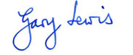 Gary Lewis